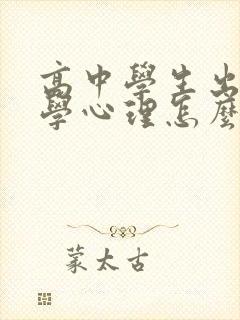 高中學生出
學心理怎麼
蒙太古